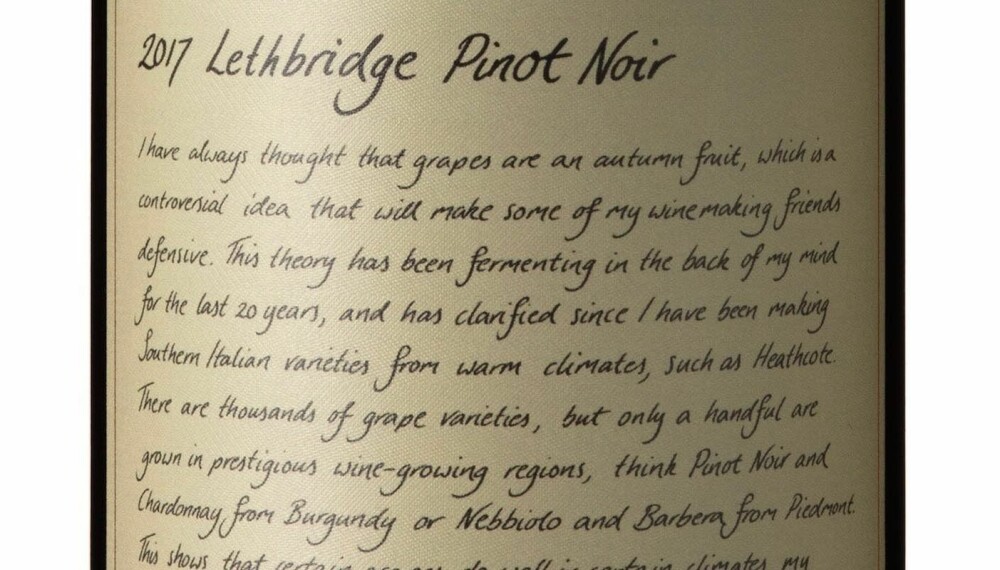 2017 Lethbridge Pinot Noir
I have always thought that grapes are an autumn fruit, which is a
controversial idea that will make some of my winemaking friends
defensive. This theory has been fermenting in the back of my mind
for the last 20 years, and has clarified since I have been making
Southern Italian varieties from warm climates, such as Heathcote.
There are thousands of grape varieties, but only a handful are
grown in prestigious wine-growing regions, think Pinot Noir and
Chardonnay from Burgundy or Nebbiolo and Barbera from Piedmont.
This shows that certain do well in certain climates, my